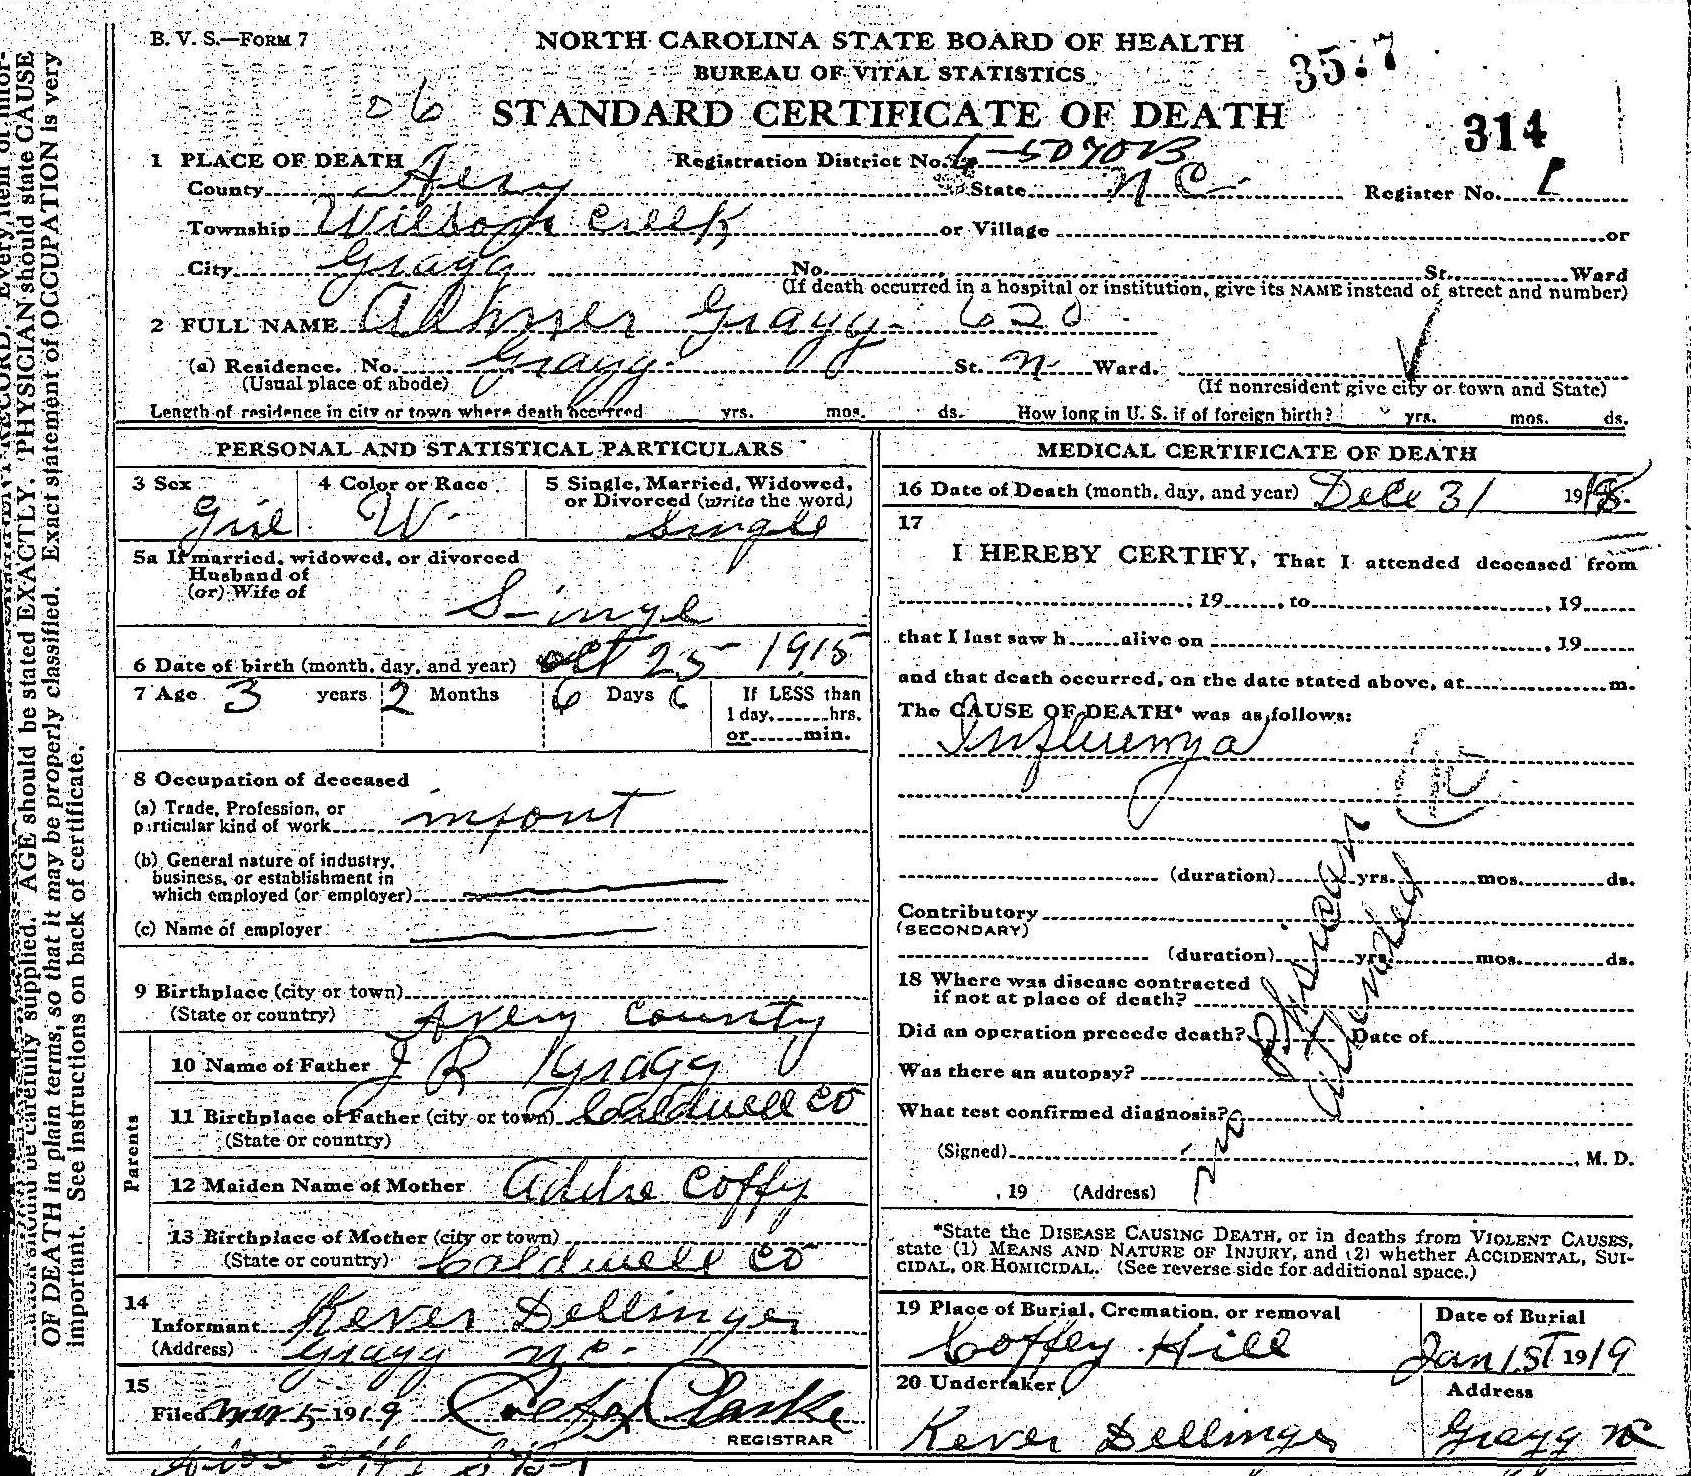 B. V. S.—FORM 7
NORTH CAROLINA STATE BOARD OF HEALTH
BUREAU OF VITAL STATISTICS
STANDARD CERTIFICATE OF DEATH
06
314
1 PLACE OF DEATH Registration District No. 5090B
County Avery State N C Register No. 1
Township Wilson Creek or Village or
City Gragg No. St. Ward
(If death occurred in a hospital or institution, give its NAME instead of street and number)
2 FULL NAME Gragg 620
(a) Residence. No. Gragg St. N Ward.
(Usual place of abode) (If nonresident give city or town and State)
Length of residence in city or town where death occurred yrs. mos. ds. How long in U. S. if of foreign birth? yrs. mos. ds.
PERSONAL AND STATISTICAL PARTICULARS
3 Sex 4 Color or Race 5 Single, Married, Widowed,
or Divorced (write the word)
Girl W. Single
5a If married, widowed, or divorced
Husband of
(or) Wife of
Singl
6 Date of birth (month, day, and year) Oct 25 1915
7 Age 3 years 2 Months 6 Days 6 If LESS than
1 day, hrs.
or min.
8 Occupation of deceased
(a) Trade, Profession, or
particular kind of work infont
(b) General nature of industry,
business, or establishment in
which employed (or employer)
(c) Name of employer
9 Birthplace (city or town)
(State or country) Avery County
Parents
10 Name of Father J R Gragg
11 Birthplace of Father (city or town) Caldwell Co
(State or country)
12 Maiden Name of Mother Addie Coffy
13 Birthplace of Mother (city or town)
(State or country) Caldwell Co
14
Informant Kever Dellinger
(Address) Gragg N C.
15
Filed 5 1919 Clarke
REGISTRAR
MEDICAL CERTIFICATE OF DEATH
16 Date of Death (month, day, and year) Dec 31 1918.
17
I HEREBY CERTIFY, That I attended deceased from
, 19 , to , 19
that I last saw h alive on , 19
and that death occurred, on the date stated above, at m.
The CAUSE OF DEATH* was as follows:
Influenza
(duration) yrs. mos. ds.
Contributory
(SECONDARY)
(duration) yrs. mos. ds.
18 Where was disease contracted
if not at place of death?
Did an operation precede death? Date of
Was there an autopsy?
What test confirmed diagnosis?
(Signed) , M. D.
, 19 (Address)
No Phisican
attended
*State the DISEASE CAUSING DEATH, or in deaths from VIOLENT CAUSES,
state (1) MEANS AND NATURE OF INJURY, and (2) whether ACCIDENTAL, SUI-
CIDAL, OR HOMICIDAL. (See reverse side for additional space.)
19 Place of Burial, Cremation, or removal Date of Burial
Coffey Hill Jan 1st 1919
20 Undertaker Address
Kever Dellinger Gragg NC
RECORD. Every item of infor-
mation should be carefully supplied. AGE should be stated EXACTLY. PHYSICIAN should state CAUSE
OF DEATH in plain terms, so that it may be properly classified. Exact statement of OCCUPATION is very
important. See instructions on back of certificate.